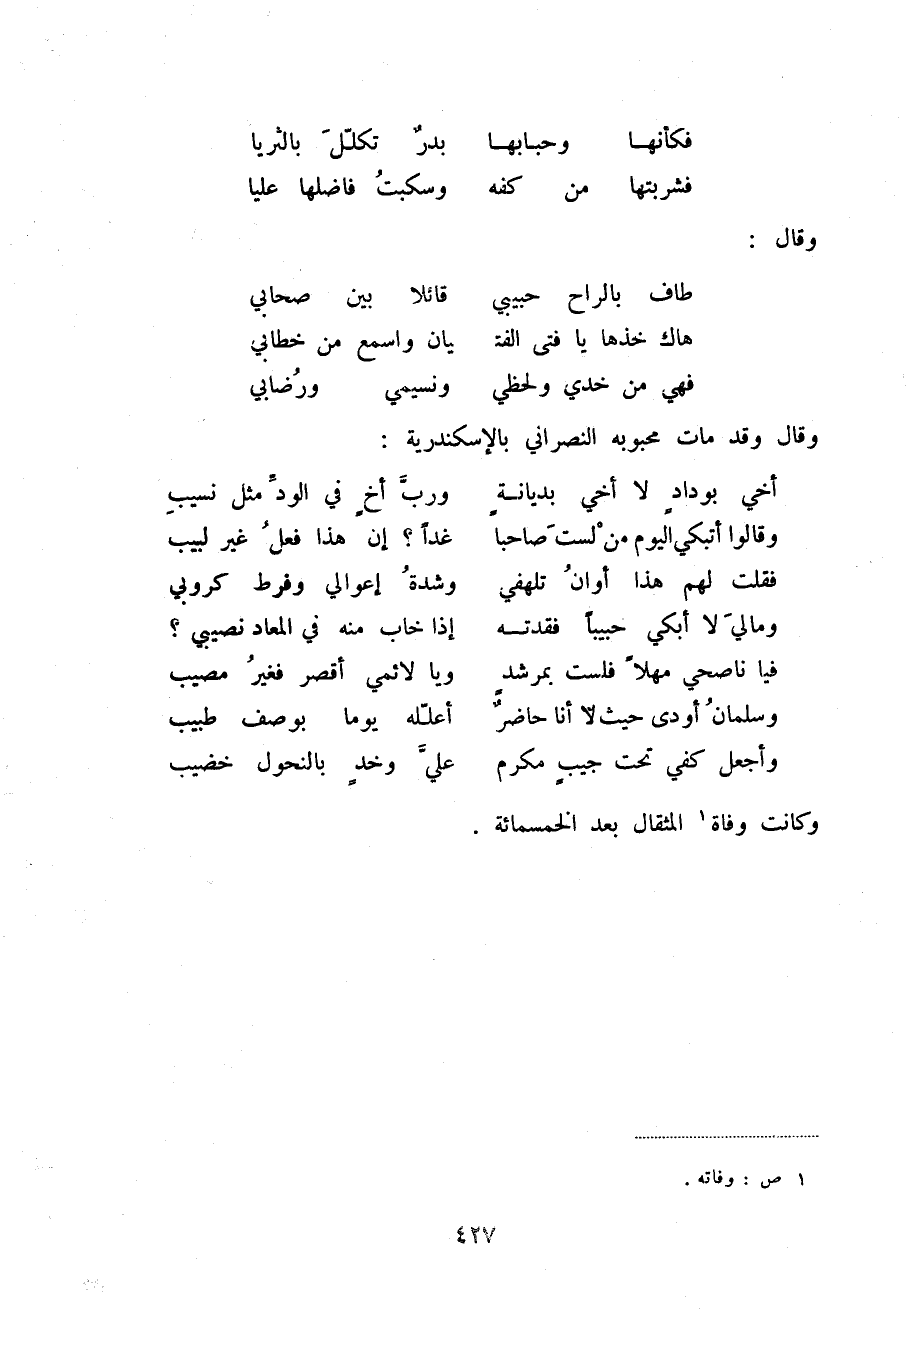 فكأنهـا وحبـابهـا بدرٌ تكلّلَ بالثريا
فشربتها من كفه وسكبتُ فاضلها عليا
وقال :
طاف بالراح حبيبي قائلا بين صحابي
هاك خذها يا فتى الفتـ يان واسمع من خطابي
فهي من خدي ولحظي ونسيمي ورُضابي
وقال وقد مات محبوبه النصراني بالإسكندرية :
أخي بودادٍ لا أخي بديانـةٍ وربَّ أخٍ في الودِّ مثل نسيبِ
وقالوا أتبكي اليوم منْ لستَ صاحبا غداً ؟ إن هذا فعلُ غير لبيب
فقلت لهم هذا أوانُ تلهفي وشدةُ إعوالي وفرط كروبي
وماليَ لا أبكي حبيباً فقدتـه إذا خاب منه في المعاد نصيبي ؟
فيا ناصحي مهلاً فلست بمرشدٍ ويا لائمي أقصر فغيرُ مصيب
وسلمانُ أودى حيث لا أنا حاضرٌ أعلّله يوما بوصف طبيب
وأجعل كفي تحت جيبٍ مكرم عليَّ وخدٍ بالنحول خضيب
وكانت وفاة١ المثقال بعد الخمسمائة .
١ ص : وفاته .
٤٢٧